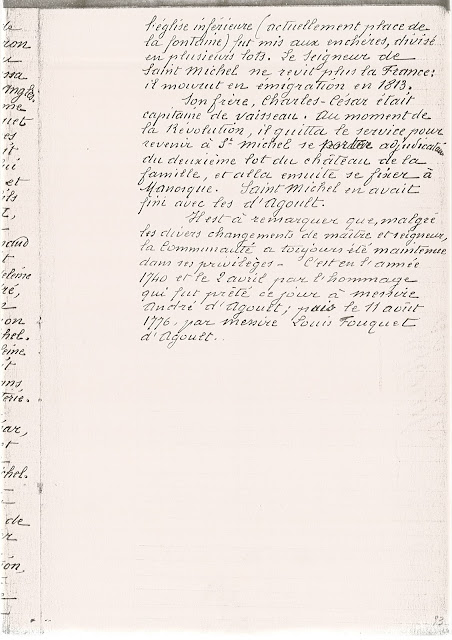 l'église inférieure (actuellement place de
la fontaine) fut mis aux enchères, divisé
en plusieurs lots. Le seigneur de
Saint Michel ne revit plus la France:
il mourut en émigration en 1813.
Son frère, Charles-César était
capitaine de vaisseau. Au moment de
la Révolution, il quitta le service pour
revenir à St Michel se porter adjudicataire
du deuxième lot du château de la
famille, et alla ensuite se fixer à
Manosque. Saint Michel en avait
fini avec les d'Agoult.
Il est à remarquer que, malgré
les divers changements de maître et seigneur,
la Communauté a toujours été maintenue
dans ses privilèges - C'est en l'année
1740 et le 2 avril par l'hommage
qui fut prêté ce jour à messire
André d'Agoult; puis le 11 août
1776, par messire Louis Fouquet
d'Agoult.